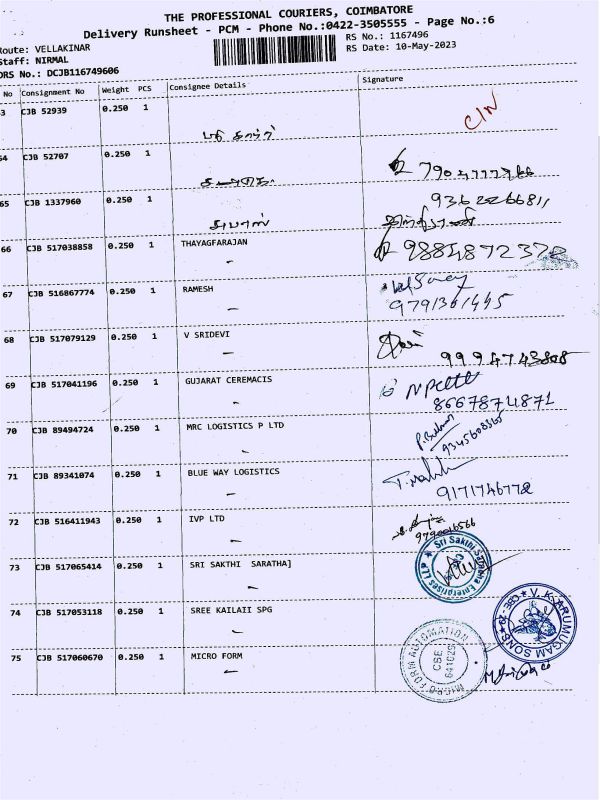 THE PROFESSIONAL COURIERS, COIMBATORE
Delivery Runsheet - PCM - Phone No.:0422-3505555 - Page No.:6
Route: VELLAKINAR
Staff: NIRMAL
DRS No.: DCJB116749606
RS No.: 1167496
RS Date: 10-May-2023
No Consignment No Weight PCS Consignee Details Signature
3 CJB 52939 0.250 1
54 CJB 52707 0.250 1
65 CJB 1337960 0.250 1 9362226681
66 CJB 517038858 0.250 1 THAYAGFARAJAN 9884872372
67 CJB 516867774 0.250 1 RAMESH 9791361445
68 CJB 517079129 0.250 1 V SRIDEVI 9994743808
69 CJB 517041196 0.250 1 GUJARAT CEREMACIS 8667874871
70 CJB 89494724 0.250 1 MRC LOGISTICS P LTD 9345608365
71 CJB 89341074 0.250 1 BLUE WAY LOGISTICS 9171746778
72 CJB 516411943 0.250 1 IVP LTD
73 CJB 517065414 0.250 1 SRI SAKTHI SARATHA]
74 CJB 517053118 0.250 1 SREE KAILAII SPG
V.K.ARUMUGAM SONS
CBE - 29
75 CJB 517060670 0.250 1 MICRO FORM
MICRO FORM AUTOMATION
CBE